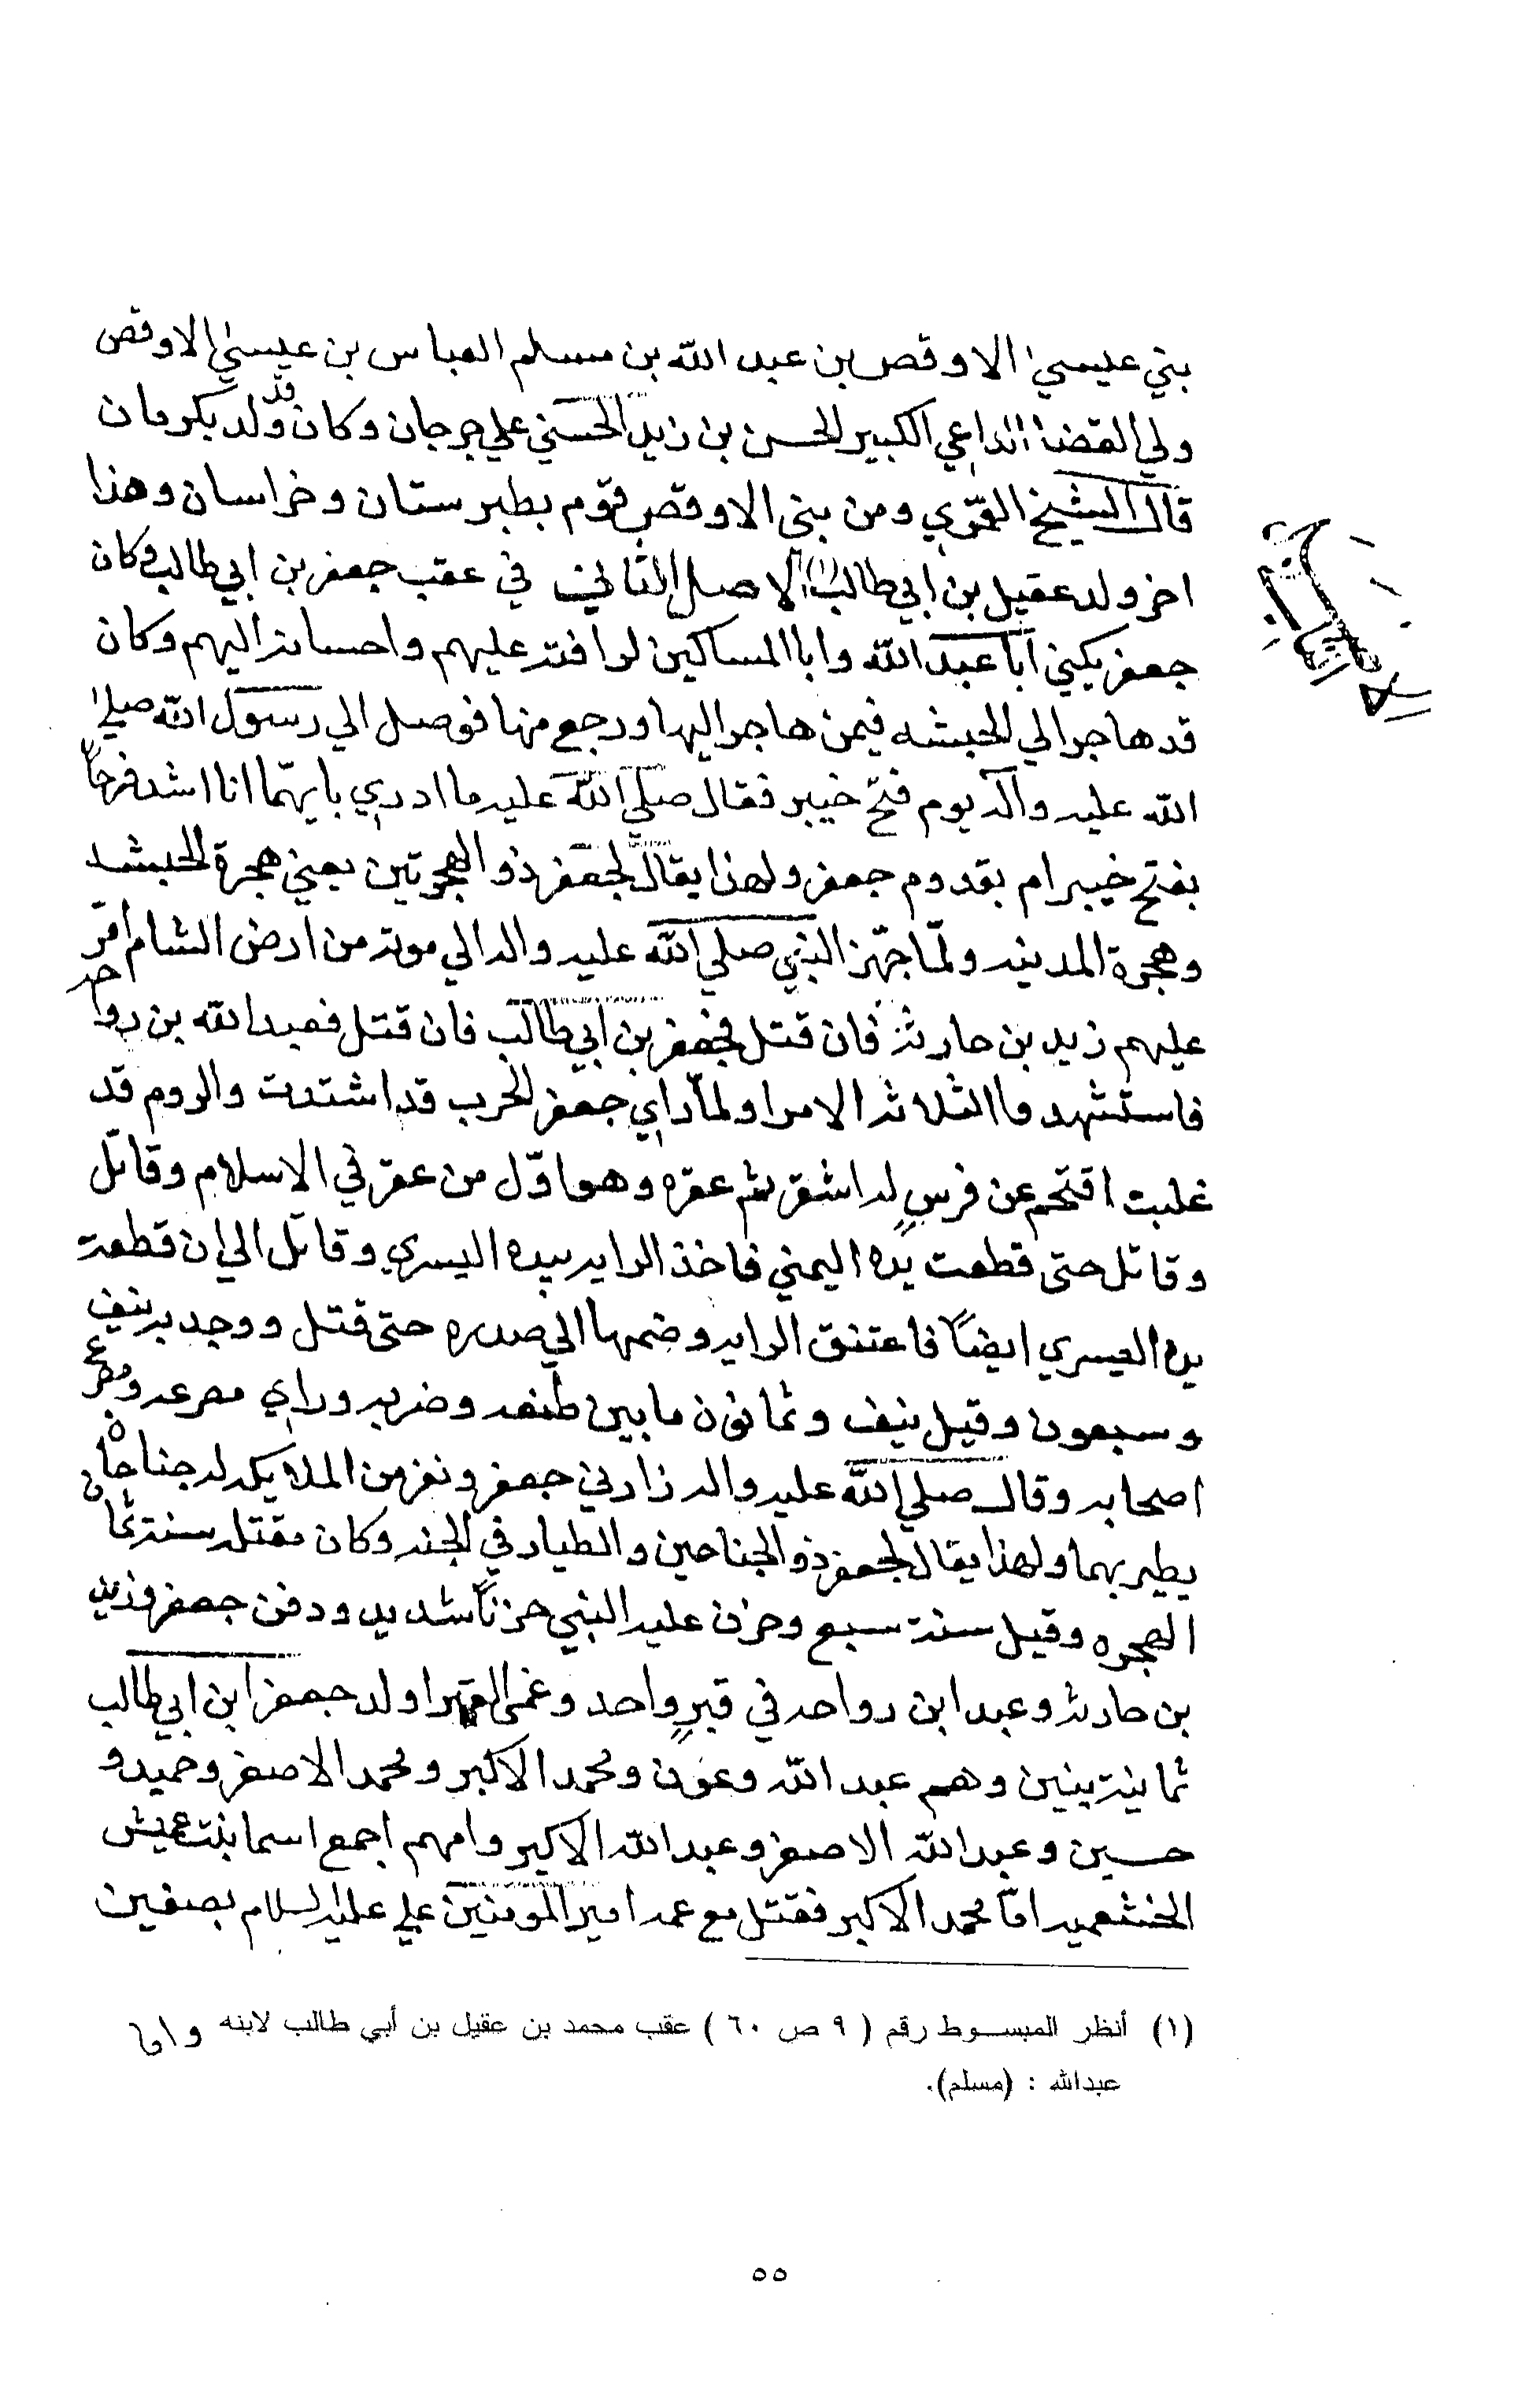 بني عيسي الاوقص بن عبد الله بن مسلم العباس بن عيسي الاوقص
ولي القضا الداعي الكبير الحسن بن زيد الحسني علي جرجان وكان قد ولد بكرمان
قال الشيخ العمري ومن بني الاوقص قوم بطبرستان وخراسان وهذا
اخر ولد عقيل بن ابي طالب (١) الاصل الثاني في عقب جعفر بن ابي طالب وكان
جعفر يكني ابا عبد الله وابا المساكين لرافته عليهم واحسانه اليهم وكان
قد هاجر الي الحبشه فيمن هاجر اليها ورجع منها فوصل الي رسول الله صلي
الله عليه وآله يوم فتح خيبر فقال صلي الله عليه ما ادري بايهما انا اشد فرحاً
بفتح خيبر ام بقدوم جعفر ولهذا يقال لجعفر ذو الهجرتين يعني هجرة الحبشه
وهجرة المدينه ولمّا جهّز النبي صلي الله عليه واله الي موته من ارض الشام امّر
عليهم زيد بن حارثه فان قتل فجعفر بن ابي طالب فان قتل فعبد الله بن رواحه
فاستشهدوا الثلاثه الامرا ولمّا راي جعفر الحرب قد اشتدت والروم قد
غلبت اقتحم عن فرسٍ له اشقر ثم عقره وهو اوّل من عقر في الاسلام وقاتل
وقاتل حتى قطعت يده اليمني فاخذ الرايه بيده اليسري وقاتل الي ان قطعت
يده اليسري ايضاً فاعتنق الرايه وضمها الي صدره حتى قتل ووجد به نيف
وسبعون وقيل نيف وثمانون ما بين طنعه وضربه وراي مصرعه ومصرع
اصحابه وقال صلي الله عليه واله زارني جعفر ونفر من الملايكه له جناحان
يطير بهما ولهذا يقال لجعفر ذو الجناحين والطيار في الجنه وكان مقتله سنة ثمان
الهجره وقيل سنة سبع وحزن عليه النبي حزناً شديد ودفن جعفر وزيد
بن حارثه وعبد ابن رواحه في قبرٍ واحد وعمى القبر اولد جعفر ابن ابي طالب
ثمانية بنين وهم عبد الله وعون ومحمد الاكبر ومحمد الاصغر وحميد و
حسين وعبد الله الاصغر وعبد الله الاكبر وامهم اجمع اسما بنت عميش
الخثعميه امّا محمد الاكبر فقتل مع عمه امير المومنين علي عليه السلام بصفين
(١) أنظر المبسوط رقم ( ٩ ص ٦٠ ) عقب محمد بن عقيل بن أبي طالب لابنه واما
عبدالله : (مسلم).
٥٥